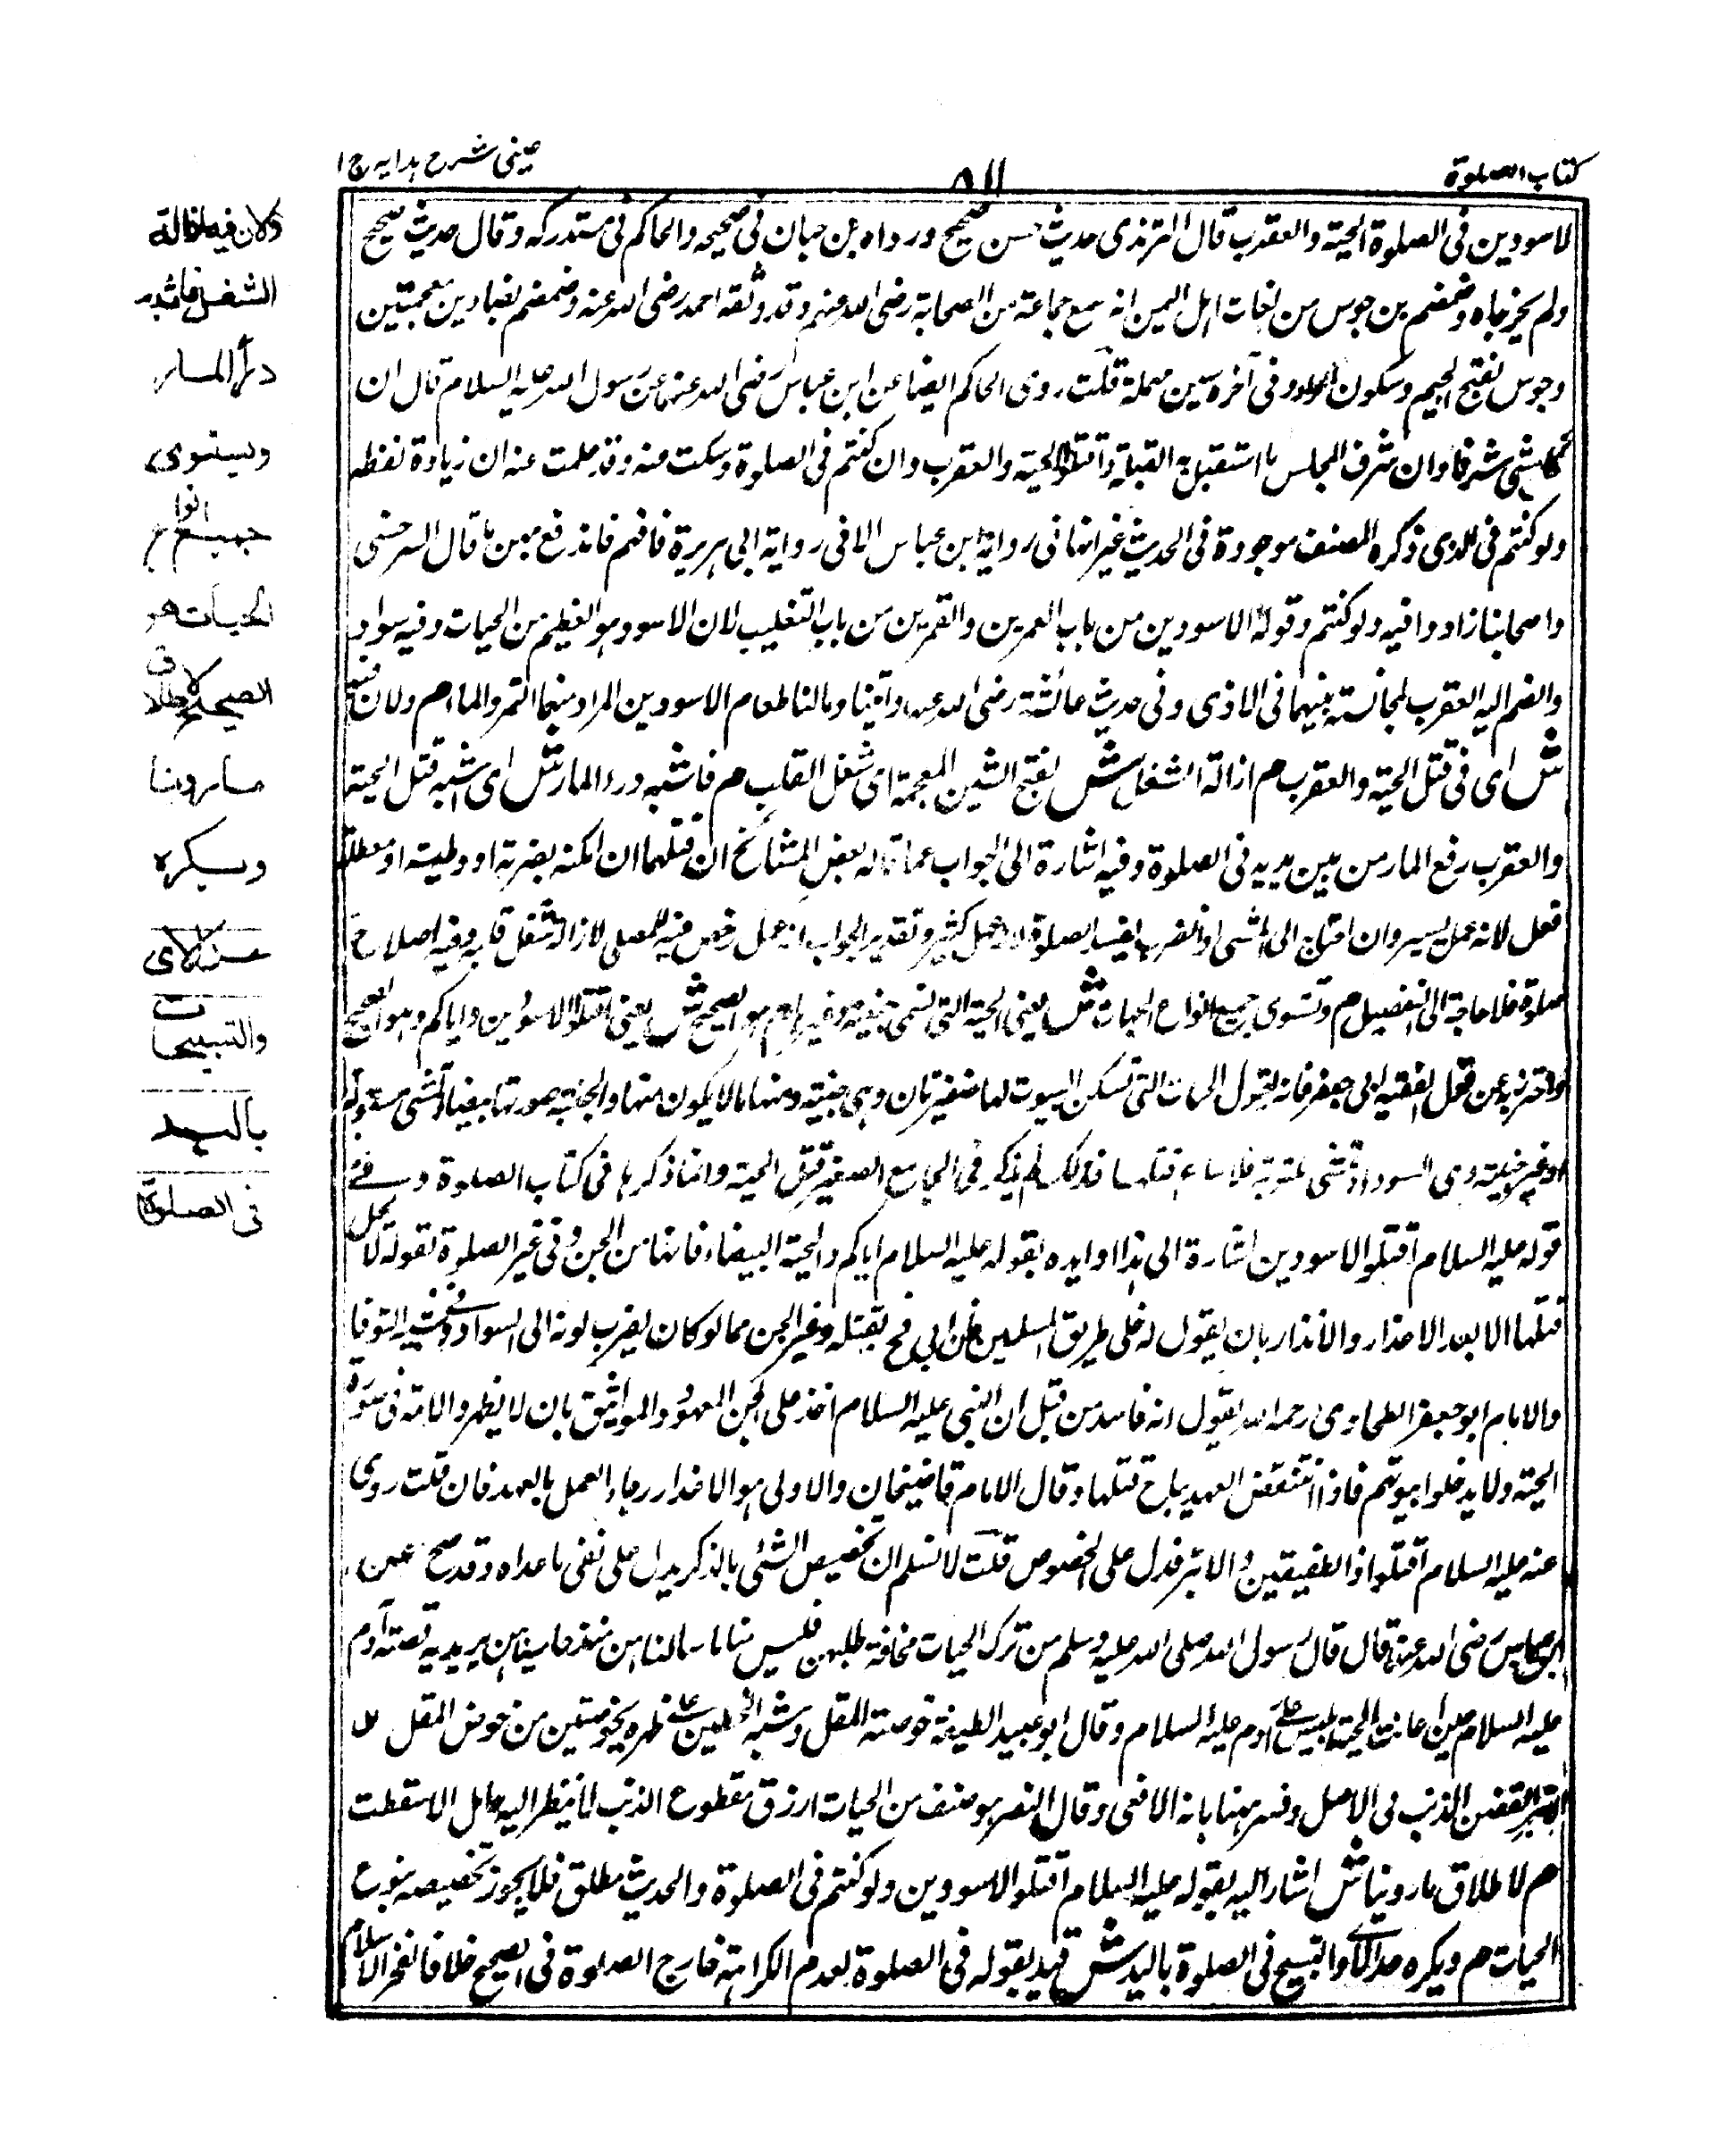 كتاب الصلوة
٨١١
عینی شرح ہدایہ ج ا
لاسودين فى الصلوة الحية والعقرب قال الترمذى حديث حسن صحيح ورواه بن حبان فى صحيحه والحاكم فى مستدركه وقال حديث صحيح
ولم يخرجاه وضمضم بن جوس من ثقات اهل اليمن انه سمع جماعة من الصحابة رضى الله عنهم وقد وثقه احمد رضى الله عنه وضمضم بضادين معجمتين
وجوس بفتح الجيم وسكون الواو وفى آخره سين مهملة قلت روى الحاكم ايضا عن ابن عباس رضى الله عنهما عن رسول الله عليه السلام قال ان
لكل شىء شرفا وان شرف المجالس ما استقبل به القبلة واقتلوا الحية والعقرب وان كنتم فى الصلوة وسكت عنه وقد علمت عنه ان زيادة لفظه
ولو كنتم فى الذى ذكره المصنف موجودة فى الحديث غير انها فى رواية ابن عباس الا فى رواية ابى هريرة فافهم فاندفع بهن ما قال السرخسى
واصحابنا زادوا فيه ولو كنتم وقوله الاسودين من باب العمرين والقمرين من باب التغليب لان الاسود هو العظيم من الحيات وفيه سواد
وانضم اليه العقرب لمجانسته بينهما فى الاذى وفى حديث عائشة رضى الله عنها رأيتنا ومالنا طعام الا الاسودين المراد منهما التمر والماء م ولان فيه
ش اى فى قتل الحية والعقرب م ازالة الشغل ش بفتح الشين المعجمة اى شغل القلب م فاشبه درء المار ش اى اشبه قتل الحية
والعقرب رفع المار من بين يديه فى الصلوة وفيه اشارة الى الجواب عما قاله بعض المشائخ ان قتلهما ان امكنه بضربة او وطئة او مطلقا
فعل لانه عمل يسير وان احتاج الى المشى او الضرب يفسد الصلوة لانه عمل كثير وتقدير الجواب انه عمل رخص فيه للمصلى لازالة شغل قلبه وفيه اصلاح
صلوة فلا حاجة الى التفصيل م وتستوى جميع انواع الحيات ش يعنى الحية التى تسمى جنية وغيرها م هو الصحيح ش يعنى اقتلوا الاسودين واياكم وهو الصحيح
واحترز به عن قول الفقيه ابى جعفر فانه يقول الحيات التى تسكن البيوت لها ضفيرتان وهى جنية ومنها ما لا يكون منها والجنية صورتها بيضاء تمشى مستوية
او غير جنية وهى السوداء تمشى ملتوية فلا باس بقتلها فلذلك لم يذكر فى الجامع الصغير قتل الحية وانما ذكرها فى كتاب الصلوة وفى
قوله عليه السلام اقتلوا الاسودين اشارة الى هذا وايده بقوله عليه السلام اياكم والحية البيضاء فانها من الجن وفى غير الصلوة بقوله لا يحل
قتلها الا بعد الاعذار والانذار بان يقول له خلى طريق المسلمين فان ابى فح يقتله وغير الجن مما لو كان يضرب لونه الى السواد وفى مشيه التوفا
والامام ابو جعفر الطحاوى رحمه الله يقول انه فاسد من قبل ان النبى عليه السلام اخذ على الجن العهود والمواثيق بان لا يظهروا لامته فى صورة
الحية ولا يدخلوا بيوتهم فاذا انتقض العهد يباح قتلها وقال الامام قاضيخان والاولى هو الاعذار رجاء العمل بالعهد فان قلت روى
عنه عليه السلام اقتلوا ذا الطفيتين والابتر فدل على الخصوص قلت لا نسلم ان تخصيص الشئى بالذكر يدل على نفى ما عداه وقد صح عن
ابن عباس رضى الله عنه قال قال رسول الله صلى الله عليه وسلم من ترك الحيات مخافة طلبهن فليس منا ما سالمناهن منذ حاربناهن يريد به قصته آدم
عليه السلام حين اعانت الحية ابليس على آدم عليه السلام وقال ابو عبيد الطيفة خوصته المقل وشبه الخطين على ظهره بخوصتين من خوص المقل
الابتر القصير الذنب فى الاصل وفسر ههنا بانه الافعى وقال النضر هو صنف من الحيات ازرق مقطوع الذنب لا ينظر اليه حامل الا سقطت
م لاطلاق ما روينا ش اشار اليه بقوله عليه السلام اقتلوا الاسودين ولو كنتم فى الصلوة والحديث مطلق فلا يجوز تخصيصه بنوع
الحيات م ويكره عد الآى والتسبيح فى الصلوة باليد ش قيد بقوله فى الصلوة لعدم الكراهة خارج الصلوة فى الصحيح خلافا لفخر الاسلام
ولان فيه ازالة
الشغل فاشبه
درأ المار
ويستوى
جميع انواع
الحيات هو
الصحيح لاطلاق
ما روينا
ويكره
عد الآى
والتسبيحات
باليد
فى الصلوة